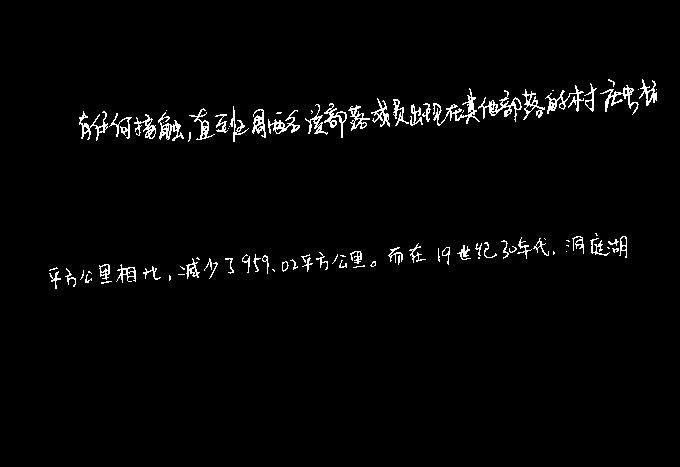 有任何接触,直至上周两名该部落成员出现在其他部落的村庄中
平方公里相比,减少了959.02平方公里。而在19世纪30年代,洞庭湖